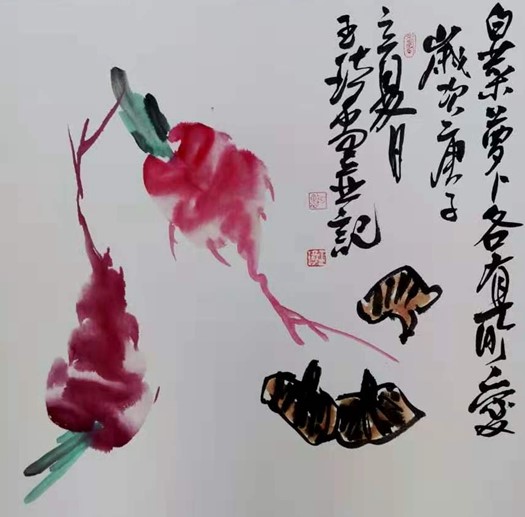 白菜萝卜各有所爱
岁次庚子
立夏月
王琦画并記